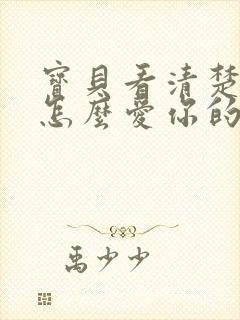 寶貝看清楚
怎麼愛你的
禹少少